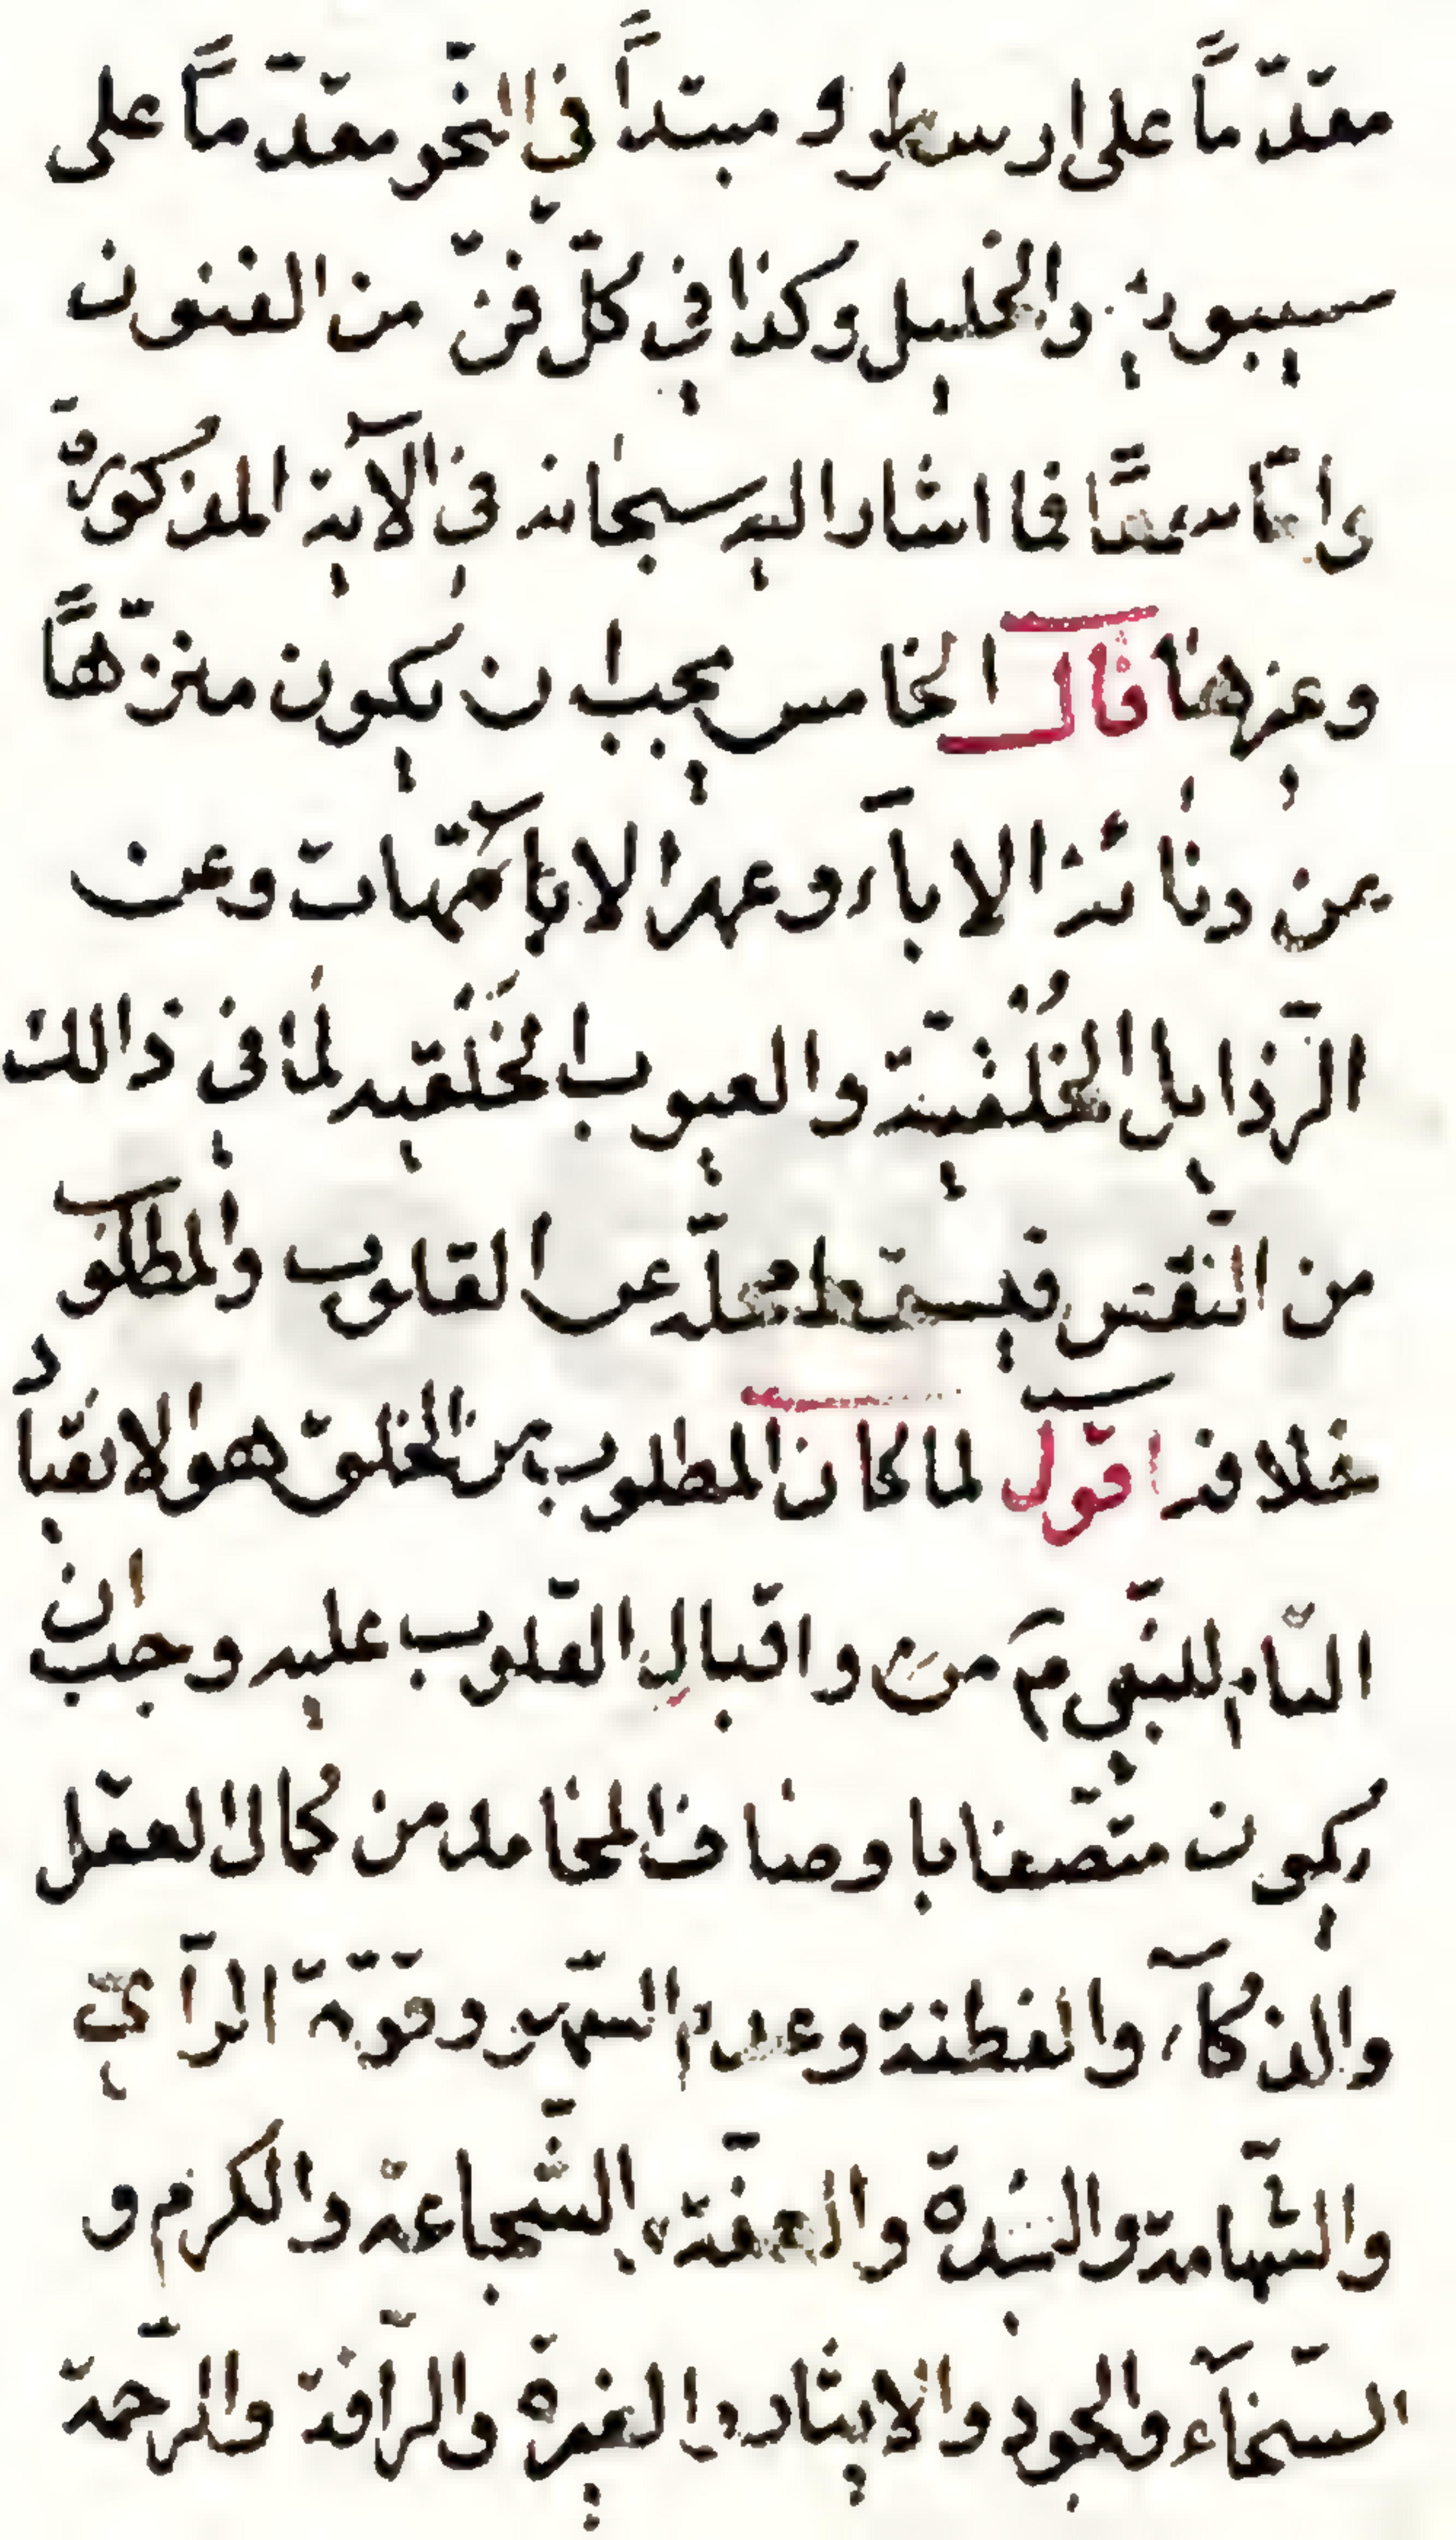 مقدّماً على ارسطو و مبتدأً في النّحو مقدّماً على
سيبويه والخليل وكذا في كلّ فنّ من الفنون
وامّا سمعاً فما اشار اليه سبحانه في الآية المذكورة
وغيرها قال الخامس يجب ان يكون منزّهاً
عن دنائة الاباء وعهر الامّهات وعن
الرّذايل الخُلقيّة والعيوب الخَلقيه لما في ذالك
من النّقص فيسقط محلّه عن القلوب والمطلوب
خلافه اقول لما كان المطلوب من الخلق هو الانقياد
التّام للنّبي ﷺ واقبال القلوب عليه وجب ان
يكون متّصفا باوصاف المحامد من كمال العقل
والذكآء والفطنة وعدم السّهو وقوّة الرّأي
والشّهامة والنّجدة والعفّة والشّجاعة والكرم و
السّخآء والجود والايثار والغيرة والرّافة والرّحمة